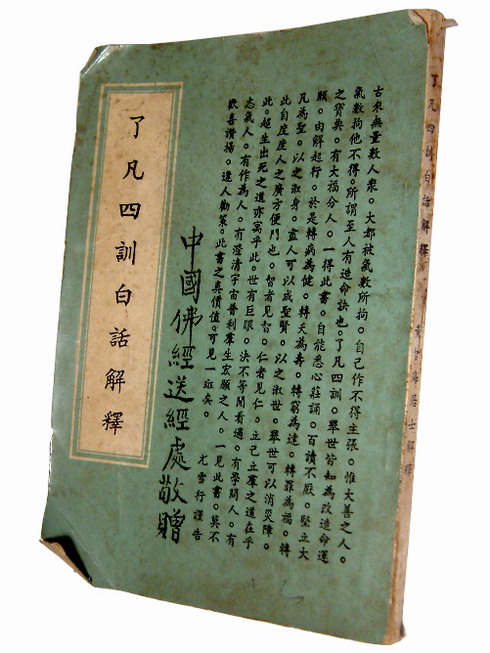 了凡四訓白話解釋
海居士解釋
古來無量數人衆。大都被氣數所拘。自己作不得主張。惟大善之人。
氣數拘他不得。所謂至人有造命訣也。了凡四訓。舉世皆知為改造命運
之寶典。有大福分人。一得此書。自能悉心莊誦。百讀不厭。堅立大
願。由解起行。於是轉病為健。轉夭為壽。轉窮為達。轉罪為福。轉
凡為聖。以之淑身。盡人可以成聖賢。以之淑世。舉世可以消災障。
此自度度人之廣方便門也。智者見智。仁者見仁。立己立羣之道在乎
此。超生出死之道亦寓乎此。世有巨眼。決不等閒看過。有學問人。有
志氣人。有作為人。有澄清宇宙普利羣生宏願之人。一見此書。莫不
歡喜讚揚。逢人勸策。此書之真價值。可見一斑矣。
尤雪行謹告
中國佛經送經處敬贈
了凡四訓白話解釋